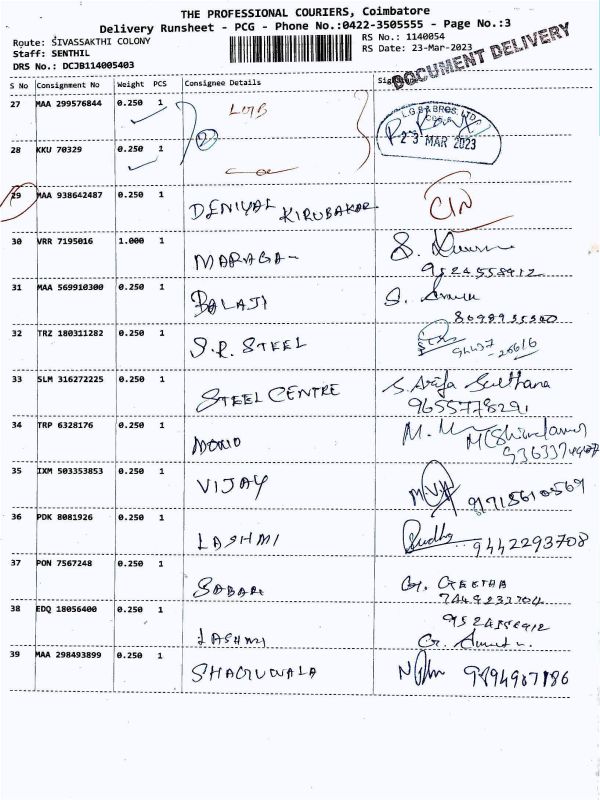 THE PROFESSIONAL COURIERS, Coimbatore
Delivery Runsheet - PCG - Phone No.:0422-3505555 - Page No.:3
Route: SIVASSAKTHI COLONY
RS No.: 1140054
Staff: SENTHIL
RS Date: 23-Mar-2023
DRS No.: DCJB114005403
DOCUMENT DELIVERY
S No Consignment No Weight PCS Consignee Details
27 MAA 299576844 0.250 1 LGB
L.G.B & BROS. LTD
23 MAR 2023
28 KKU 70329 0.250 1
29 MAA 938642487 0.250 1 DENIYAL KIRUBAKAR
30 VRR 7195016 1.000 1
9524558912
31 MAA 569910300 0.250 1 BALAJI
32 TRZ 180311282 0.250 1 S.R. STEEL
33 SLM 316272225 0.250 1 STEEL CENTRE S. Arifa Sulthana
9655778291
34 TRP 6328176 0.250 1 MONO
35 IXM 503353853 0.250 1 VIJAY
36 PDK 8081926 0.250 1 LASHMI Sudha 9442293708
37 PON 7567248 0.250 1 SABARI G. GEETHA
38 EDQ 18056400 0.250 1 LASHMI
39 MAA 298493899 0.250 1